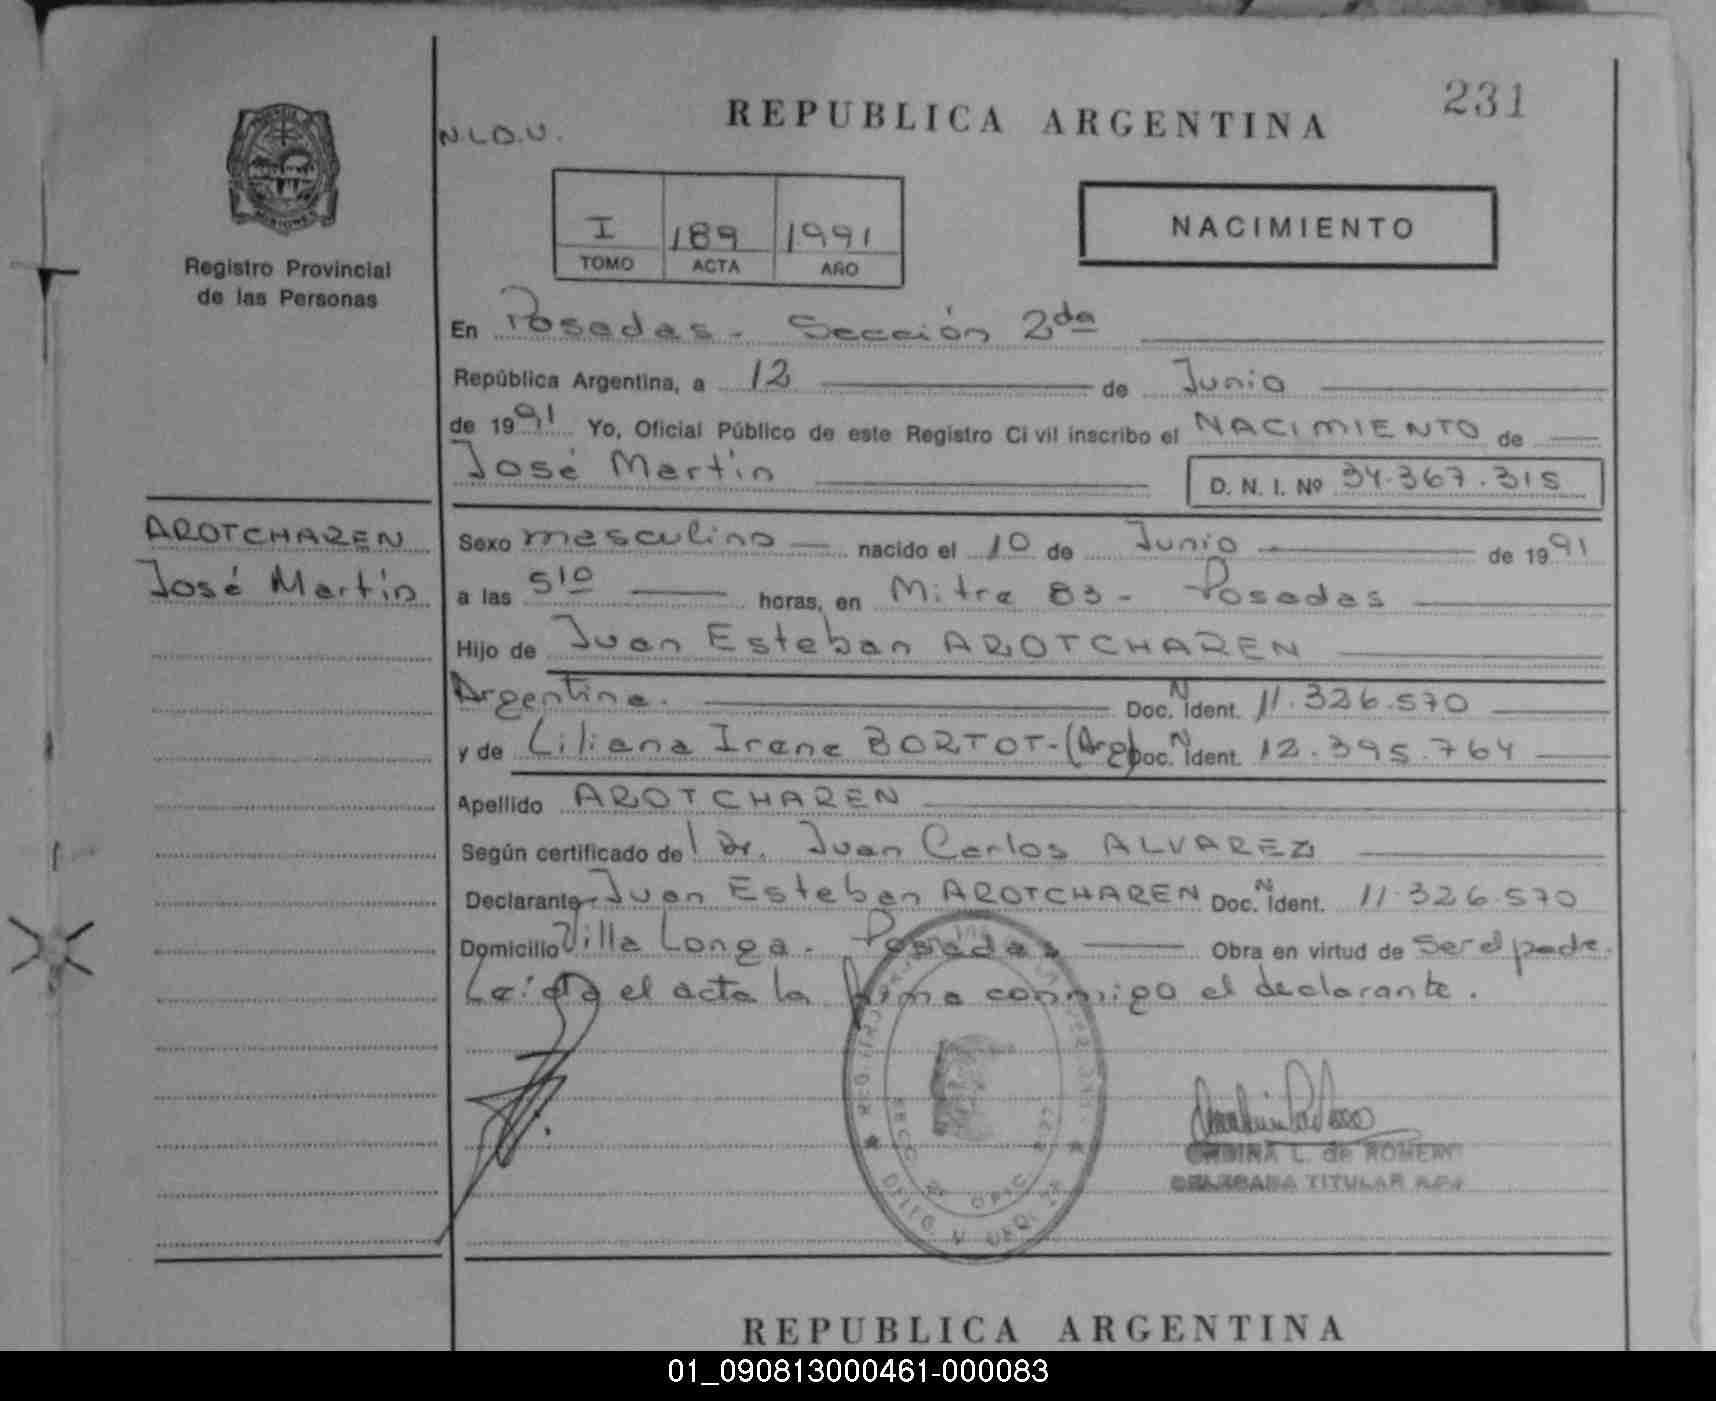 231
REPUBLICA ARGENTINA
N.L.O.U.
I 189 1991
TOMO ACTA AÑO
NACIMIENTO
Registro Provincial
de las Personas
En Posadas - Sección 2da
República Argentina, a 12 de Junio
de 1991 Yo, Oficial Público de este Registro Civil inscribo el NACIMIENTO de
José Martín D. N. I. Nº 34.367.315
AROTCHAREN
José Martín
Sexo masculino nacido el 10 de Junio de 1991
a las 510 horas, en Mitre 83 - Posadas
Hijo de Juan Esteban AROTCHAREN
Argentina. Doc. N Ident. 11.326.570
y de Liliana Irene BORTOT-(Arg) Doc. N Ident. 12.395.764
Apellido AROTCHAREN
Según certificado del Dr. Juan Carlos ALVAREZ
Declarante Juan Esteban AROTCHAREN Doc. N Ident. 11.326.570
Domicilio Villa Longa. Posadas Obra en virtud de Ser el padre.
Leída el acta la firma conmigo el declarante.
L. de ROMERO
TITULAR
REPUBLICA ARGENTINA
01_090813000461-000083